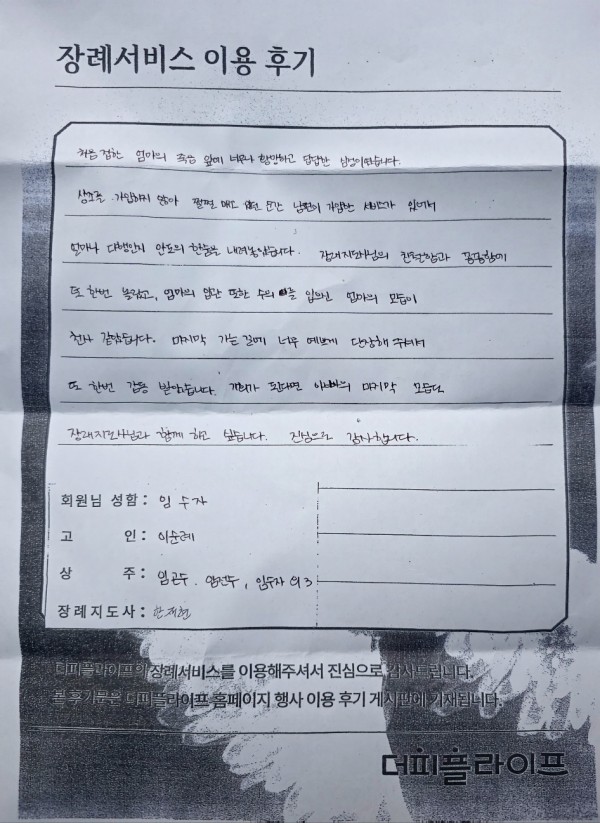 장례서비스 이용 후기
처음 접한 엄마의 죽음 앞에 너무나 황망하고 답답한 심정이었습니다.
상조를 가입하지 않아 쩔쩔 매고 있던 순간 남편이 가입한 서비스가 있어서
얼마나 다행인지 안도의 한숨을 내려놓았습니다. 장례지도사님의 친절함과 꼼꼼함에
또 한번 놀랐고, 엄마의 입관 또한 수의를 입으신 엄마의 모습이
천사 같았습니다. 마지막 가는 길에 너무 예쁘게 단장해 주셔서
또 한번 감동 받았습니다. 기회가 된다면 아버지의 마지막 모습도
장례지도사님과 함께 하고 싶습니다. 진심으로 감사합니다.
회원님 성함: 임수자
고 인: 이순례
상 주: 임수자 외 3
장례지도사:
더피플라이프의 장례서비스를 이용해주셔서 진심으로 감사드립니다.
본 후기문은 더피플라이프 홈페이지 행사 이용 후기 게시판에 기재됩니다.
더피플라이프